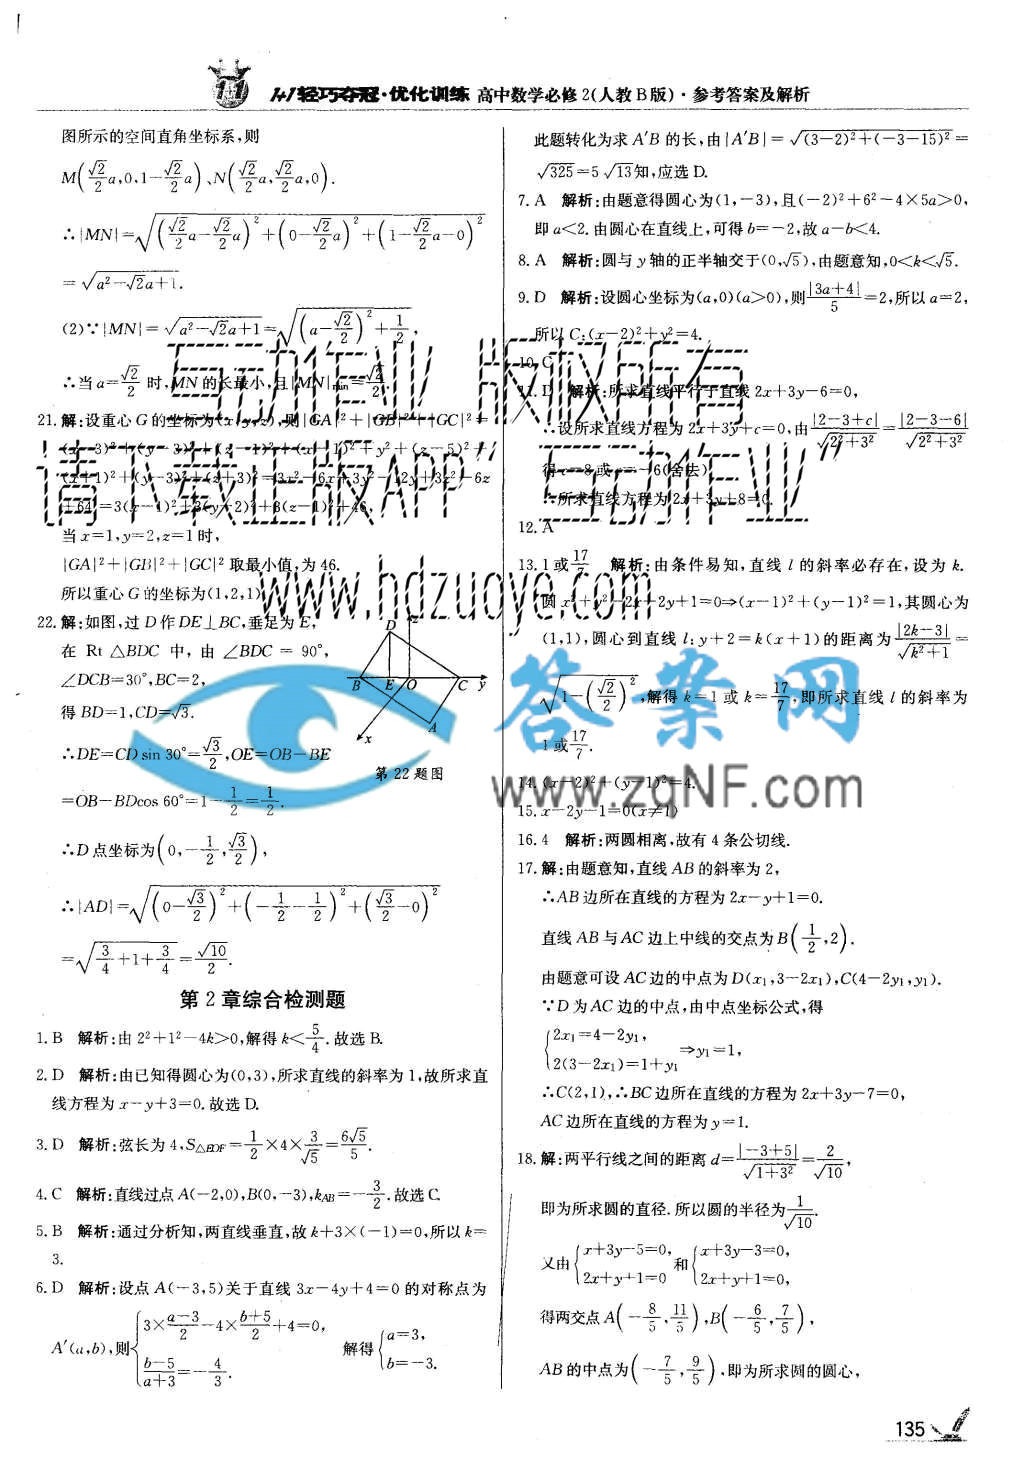 1+1轻巧夺冠·优化训练 高中数学必修2(人教B版)·参考答案及解析
图所示的空间直角坐标系,则
M(√2/2 a,0,1-√2/2 a)、N(√2/2 a,√2/2 a,0).
∴|MN|=√((√2/2 a-√2/2 a)²+(0-√2/2 a)²+(1-√2/2 a-0)²)
=√(a²-√2a+1).
(2)∵|MN|=√(a²-√2a+1)=√((a-√2/2)²+1/2),
∴当a=√2/2时,MN的长最小,且|MN|min=√2/2.
21.解:设重心G的坐标为(x,y,z),则|GA|²+|GB|²+|GC|²=
+64=3(x-1)²+3(y-2)²+3(z-1)²+46,
当x=1,y=2,z=1时,
|GA|²+|GB|²+|GC|²取最小值,为46.
所以重心G的坐标为(1,2,1)
22.解:如图,过D作DE⊥BC,垂足为E,
在Rt△BDC中,由∠BDC=90°,
∠DCB=30°,BC=2,
得BD=1,CD=√3.
∴DE=CDsin 30°=√3/2,OE=OB-BE
=OB-BDcos 60°=1-1/2=1/2.
∴D点坐标为(0,-1/2,√3/2),
∴|AD|=√((0-√3/2)²+(-1/2-1/2)²+(√3/2-0)²)
=√(3/4+1+3/4)=√10/2.
D z
B E O C y
A
x
第22题图
第2章综合检测题
1.B 解析:由2²+1²-4k>0,解得k<5/4.故选B.
2.D 解析:由已知得圆心为(0,3),所求直线的斜率为1,故所求直
线方程为x-y+3=0.故选D.
3.D 解析:弦长为4,S△EOF=1/2×4×3/√5=6√5/5.
4.C 解析:直线过点A(-2,0),B(0,-3),kAB=-3/2.故选C.
5.B 解析:通过分析知,两直线垂直,故k+3×(-1)=0,所以k=
3.
6.D 解析:设点A(-3,5)关于直线3x-4y+4=0的对称点为
A′(a,b),则{3×(a-3)/2-4×(b+5)/2+4=0, (b-5)/(a+3)=-4/3. 解得{a=3, b=-3.
此题转化为求A′B的长,由|A′B|=√((3-2)²+(-3-15)²)=
√325=5√13知,应选D.
7.A 解析:由题意得圆心为(1,-3),且(-2)²+6²-4×5a>0,
即a<2.由圆心在直线上,可得b=-2,故a-b<4.
8.A 解析:圆与y轴的正半轴交于(0,√5),由题意知,0<k<√5.
9.D 解析:设圆心坐标为(a,0)(a>0),则|3a+4|/5=2,所以a=2,
所以C:(x-2)²+y²=4.
10.C
11.D 解析:所求直线平行于直线2x+3y-6=0,
∴设所求直线方程为2x+3y+c=0,由|2-3+c|/√(2²+3²)=|2-3-6|/√(2²+3²)
得c=8或c=-6(舍去)
∴所求直线方程为2x+3y+8=0.
12.A
13.1或17/7 解析:由条件易知,直线l的斜率必存在,设为k.
圆x²+y²-2x-2y+1=0⇒(x-1)²+(y-1)²=1,其圆心为
(1,1),圆心到直线l:y+2=k(x+1)的距离为|2k-3|/√(k²+1)=
√(1-(√2/2)²),解得k=1或k=17/7,即所求直线l的斜率为
1或17/7.
14.(x-2)²+(y-1)²=4.
15.x-2y-1=0(x≠1)
16.4 解析:两圆相离,故有4条公切线.
17.解:由题意知,直线AB的斜率为2,
∴AB边所在直线的方程为2x-y+1=0.
直线AB与AC边上中线的交点为B(1/2,2).
由题意可设AC边的中点为D(x₁,3-2x₁),C(4-2y₁,y₁).
∵D为AC边的中点,由中点坐标公式,得
{2x₁=4-2y₁, 2(3-2x₁)=1+y₁ ⇒y₁=1,
∴C(2,1),∴BC边所在直线的方程为2x+3y-7=0,
AC边所在直线的方程为y=1.
18.解:两平行线之间的距离d=|-3+5|/√(1+3²)=2/√10,
即为所求圆的直径.所以圆的半径为1/√10.
又由{x+3y-5=0, 2x+y+1=0 和{x+3y-3=0, 2x+y+1=0,
得两交点A(-8/5,11/5),B(-6/5,7/5),
AB的中点为(-7/5,9/5),即为所求圆的圆心,
135
互动作业 版权所有
请下载正版APP“互动作业”
www.hdzuoye.com
答案网
www.zqNF.com